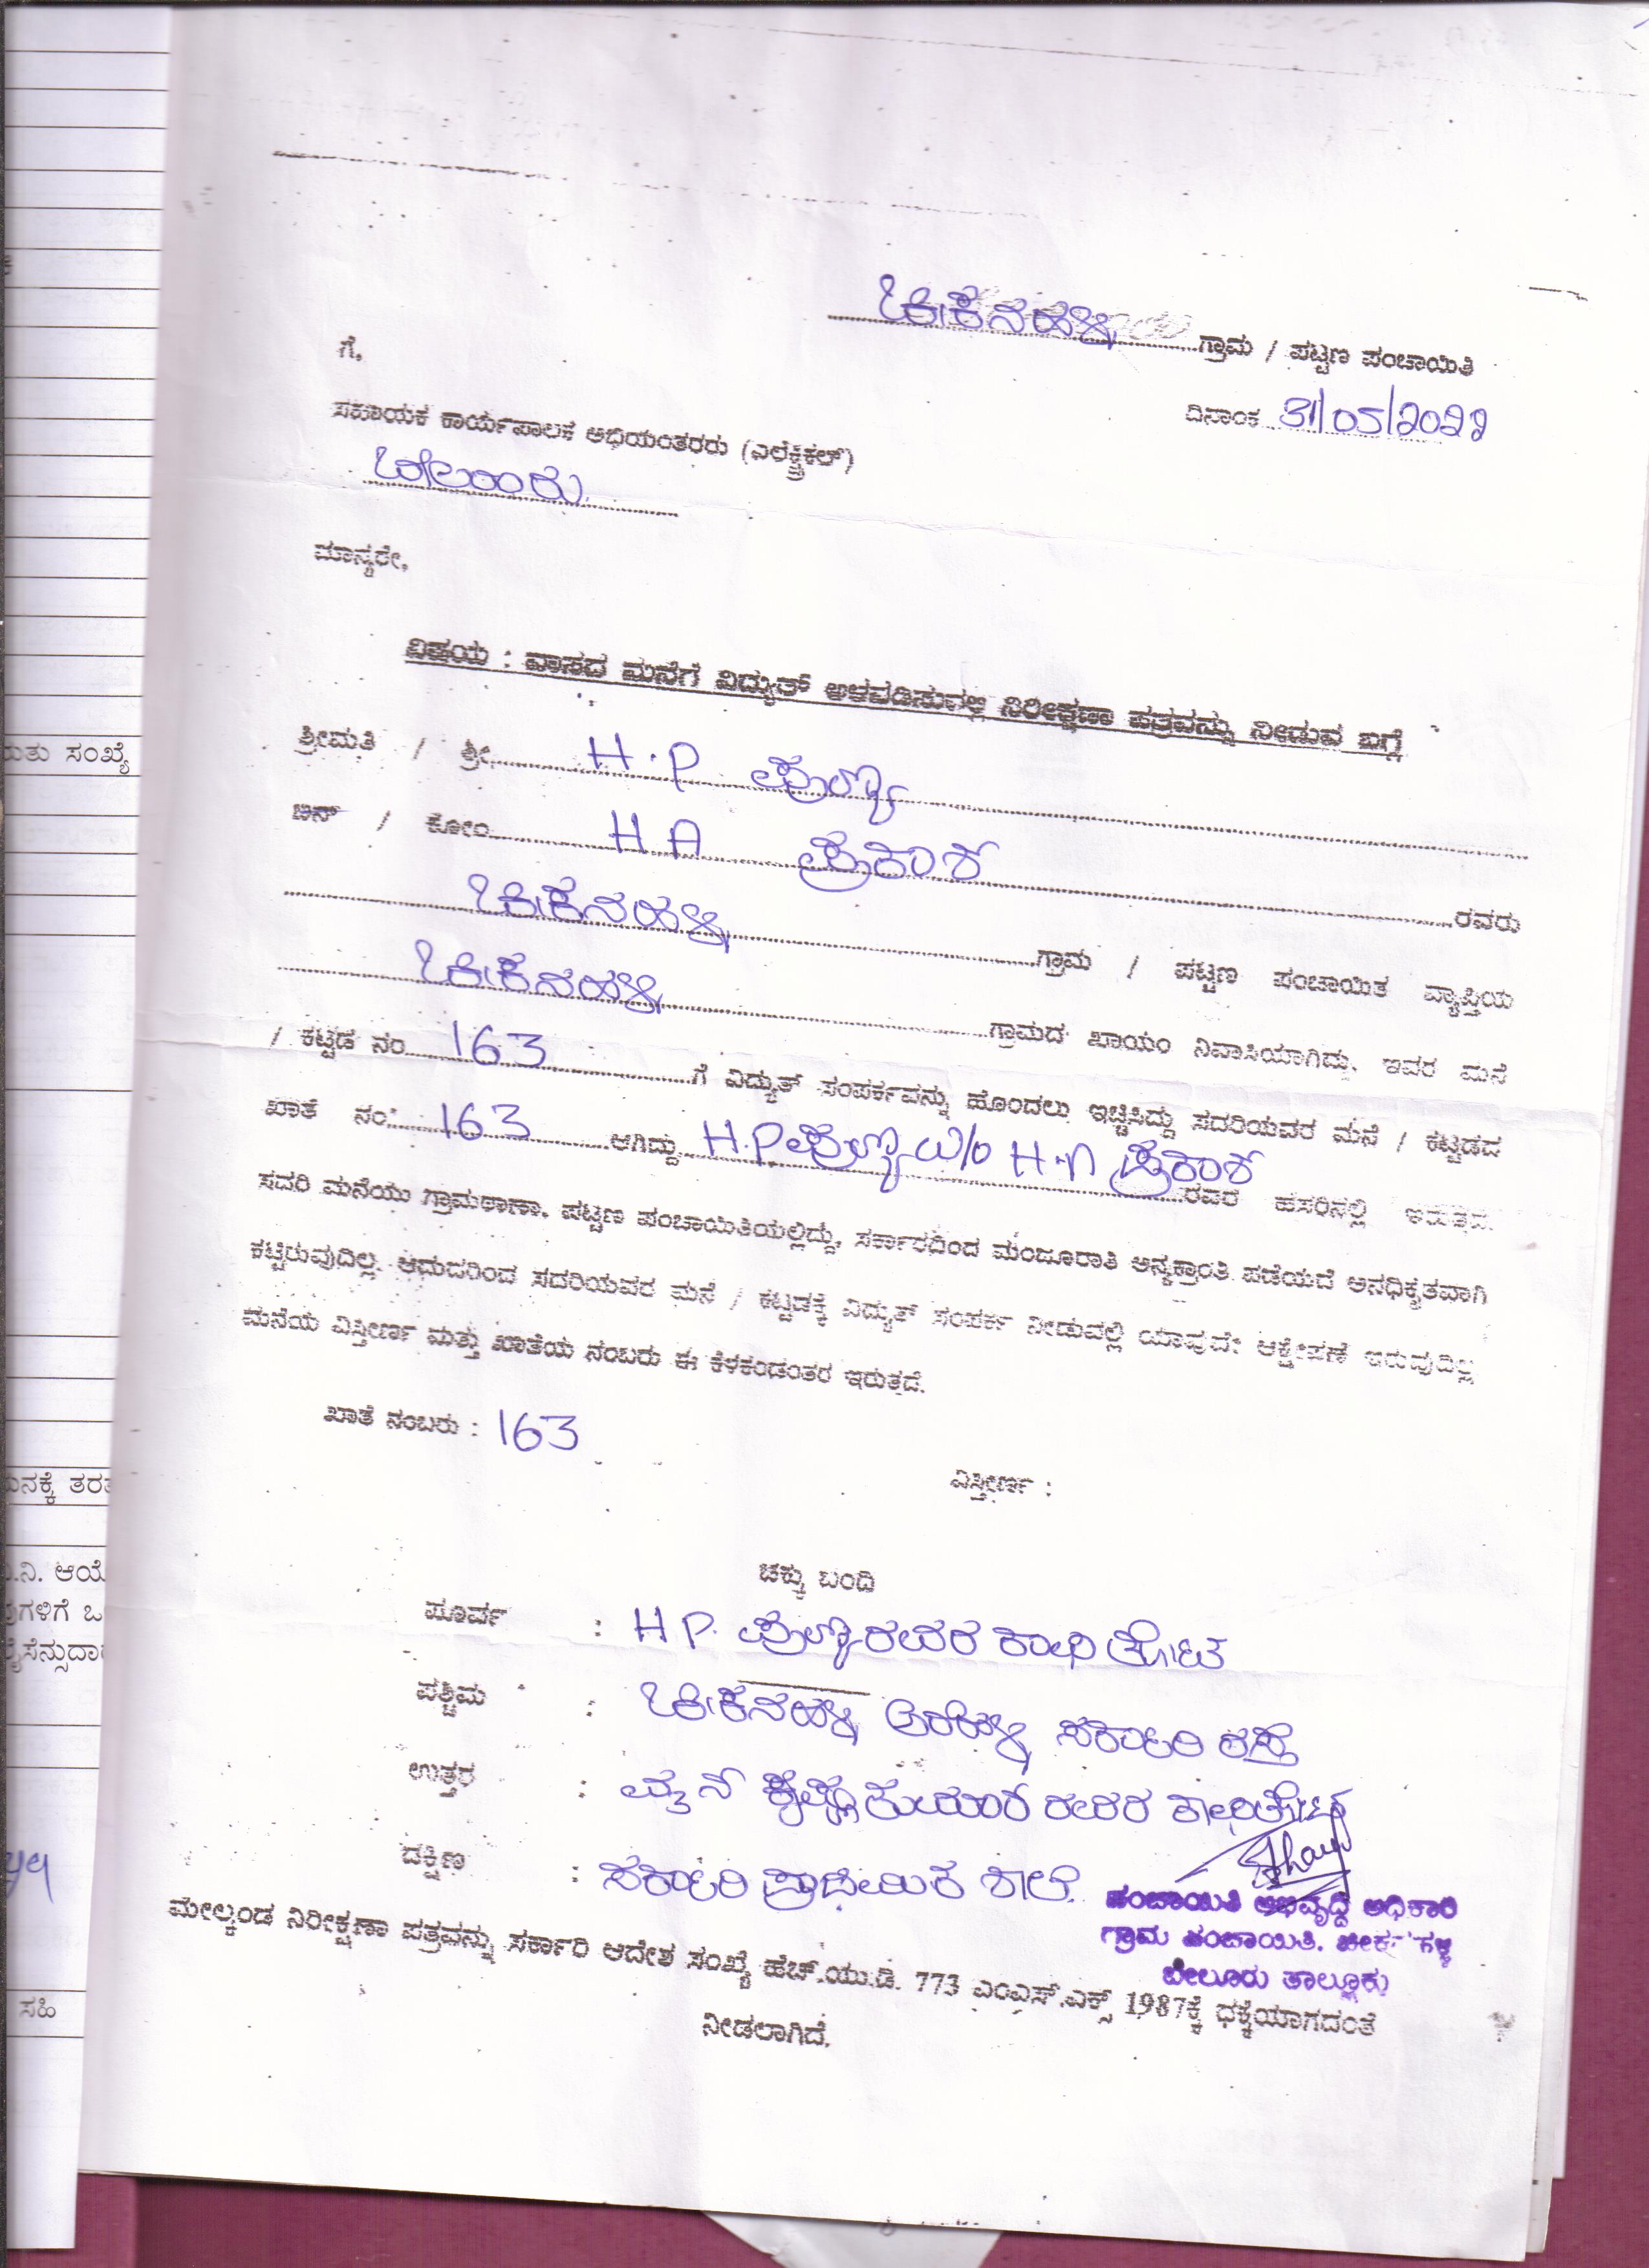 ಚೀಕನಹಳ್ಳಿ ಗ್ರಾಮ / ಪಟ್ಟಣ ಪಂಚಾಯಿತಿ
ಗೆ,
ದಿನಾಂಕ 31/05/2022
ಸಹಾಯಕ ಕಾರ್ಯಪಾಲಕ ಅಭಿಯಂತರರು (ಎಲೆಕ್ಟ್ರಿಕಲ್)
ಬೇಲೂರು.
ಮಾನ್ಯರೇ,
ವಿಷಯ : ವಾಸದ ಮನೆಗೆ ವಿದ್ಯುತ್ ಅಳವಡಿಸುವಲ್ಲಿ ನಿರೀಕ್ಷಣಾ ಪತ್ರವನ್ನು ನೀಡುವ ಬಗ್ಗೆ
ಶ್ರೀಮತಿ / ಶ್ರೀ H.P ಪುಣ್ಯ
ಬಿನ್ / ಕೋಂ H A ಪ್ರಕಾಶ ರವರು
ಚೀಕನಹಳ್ಳಿ ಗ್ರಾಮ / ಪಟ್ಟಣ ಪಂಚಾಯಿತ ವ್ಯಾಪ್ತಿಯ
ಚೀಕನಹಳ್ಳಿ ಗ್ರಾಮದ ಖಾಯಂ ನಿವಾಸಿಯಾಗಿದ್ದು, ಇವರ ಮನೆ
/ ಕಟ್ಟಡ ನಂ 163 ಗೆ ವಿದ್ಯುತ್ ಸಂಪರ್ಕವನ್ನು ಹೊಂದಲು ಇಚ್ಚಿಸಿದ್ದು ಸದರಿಯವರ ಮನೆ / ಕಟ್ಟಡದ
ಖಾತೆ ನಂ: 163 ಆಗಿದ್ದು H.P ಪುಣ್ಯ w/o H.A ಪ್ರಕಾಶ ರವರ ಹಸರಿನಲ್ಲಿ ಇರುತ್ತದೆ.
ಸದರಿ ಮನೆಯು ಗ್ರಾಮಠಾಣಾ, ಪಟ್ಟಣ ಪಂಚಾಯಿತಿಯಲ್ಲಿದ್ದು, ಸರ್ಕಾರದಿಂದ ಮಂಜೂರಾತಿ ಅನ್ಯಕ್ರಾಂತಿ ಪಡೆಯದೆ ಅನಧಿಕೃತವಾಗಿ
ಕಟ್ಟಿರುವುದಿಲ್ಲ. ಆದುದರಿಂದ ಸದರಿಯವರ ಮನೆ / ಕಟ್ಟಡಕ್ಕೆ ವಿದ್ಯುತ್ ಸಂಪರ್ಕ ನೀಡುವಲ್ಲಿ ಯಾವುದೇ ಆಕ್ಷೇಪಣೆ ಇರುವುದಿಲ್ಲ
ಮನೆಯ ವಿಸ್ತೀರ್ಣ ಮತ್ತು ಖಾತೆಯ ನಂಬರು ಈ ಕೆಳಕಂಡಂತರ ಇರುತ್ತದೆ.
ಖಾತೆ ನಂಬರು : 163
ವಿಸ್ತೀರ್ಣ :
ಚಕ್ಕು ಬಂದಿ
ಪೂರ್ವ : H P. ಪುಣ್ಯರವರ ಕಾಫಿ ತೋಟ
ಪಶ್ಚಿಮ : ಚೀಕನಹಳ್ಳಿ ಅರೇಹಳ್ಳಿ ಸರ್ಕಾರಿ ರಸ್ತೆ
ಉತ್ತರ : ಕೃಷ್ಣಕುಮಾರ ರವರ ಕಾಫಿತೋಟ
ದಕ್ಷಿಣ : ಸರ್ಕಾರಿ ಪ್ರಾಥಮಿಕ ಶಾಲೆ.
ಪಂಚಾಯಿತಿ ಅಭಿವೃದ್ಧಿ ಅಧಿಕಾರಿ
ಗ್ರಾಮ ಪಂಚಾಯಿತಿ. ಚೀಕನಹಳ್ಳಿ
ಬೇಲೂರು ತಾಲ್ಲೂಕು
ಮೇಲ್ಕಂಡ ನಿರೀಕ್ಷಣಾ ಪತ್ರವನ್ನು ಸರ್ಕಾರಿ ಆದೇಶ ಸಂಖ್ಯೆ ಹೆಚ್.ಯು.ಡಿ. 773 ಎಂಎಸ್.ಎಕ್ಸ್ 1987ಕ್ಕೆ ಧಕ್ಕೆಯಾಗದಂತೆ
ನೀಡಲಾಗಿದೆ.
ಸಂಖ್ಯೆ
ಸಹಿ